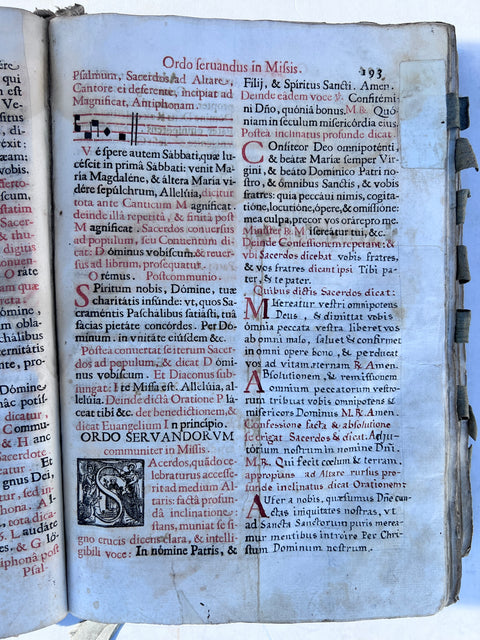 êre
qui
st en
Ve-
sitis,
dirû:
éxit:
uæ-
vobis.
derto-
scum
statim
Sacer-
& tûc
digitis
conti-
O rate
itam in
in om-
oblla-
chálibus
ternitátis
nte, pro-

Dómine
pax tec-
dicatur.
cantur
& H anc
Sacerdote
s.
tur. Et
gnus Dei,
tur, sed in-
phona. Al-
, tota dica-
L audáte
es, & G ló-
iphonâ post
Psal-
Ordo seruandus in Missis.
193
Psalmum, Sacerdos ad Altare,
Cantore ei deferente, incipiat ad
Magnificat, Antiphonam.
V éspere autem Sábbati, quæ lu-
céscit in primâ Sábbati: venit Ma-
ría Magdaléne, & áltera María vi-
dére sepúlchrum, Allelúia, dicitur
tota ante Canticum M agnificat.
deinde illa repetitâ, & finitâ post
M agnificat. Sacerdos conuersus
ad populum, seu Conuentum di-
cat: D óminus vobíscum & reuer-
sus ad librum, prosequatur.
O rémus. Postcommunio.
Spíritum nobis, Dómine, tuæ
charitátis infúnde: vt, quos Sa-
craméntis Paschálibus satiásti, tuâ
fácias pietáte concórdes. Per Dó-
minum. in vnitáte eiúsdem &c.
Postea conuertat se iterum Sacer-
dos ad populum, & dicat D ómi-
nus vobíscum. Et Diaconus sub-
iungat: I te Missa est. Allelúia, al-
lelúia. Deinde dictâ Oratione P la-
ceat tibi &c. det benedictionem, &
dicat Euangelium I n princípio.
ORDO SERVANDORVM
communiter in Missis.
SAcerdos, quâdo ce
lebraturus accesse-
rit ad medium Al-
taris: factâ profun-
dâ inclinatione:
stans, muniat se si-
gno crucis dicens clara, & intelli-
gibili voce: In nómine Patris, &
Fílij, & Spíritus Sancti. Amen.
Deinde eadem voce ℣. Confitémi-
ni Dńo, quóniâ bonus. M. ℟. Quó-
niam in sæculum misericórdia eius.
Postea inclinatus profunde dicat.
Confíteor Deo omnipoténti,
& beátæ Maríæ semper Vírgi-
ni, & beáto Domínico Patri no-
stro, & ómnibus Sanctis, & vobis
fratres: quia peccáui nimis, cogita-
tióne, locutióne, ópere, & omissióne:
mea culpa, precor vos oráre pro me.
Minister ℟. M isereátur tui, &c.
Deinde Confessionem repetant: &
vbi Sacerdos dicebat vobis fratres,
& vos fratres dicant ipsi Tibi pa-
ter, & te pater.
Quibus dictis Sacerdos dicat:
Misereatur vestri omnipotens
Deus, & dimittat vobis
omnia peccata vestra liberet vos
ab omni malo, saluet & confirmet
in omni opere bono, & perducat
vos ad vitam æternam ℟. Amen.
Absolutionem, & remissionem
omnium peccatorum vestro-
rum tribuat vobis omnipotens &
misericors Dominus M. ℟. Amen.
Confessione facta & absolutione
se erigat Sacerdos & dicat. Adju-
torium nostrum in nomine Dñi.
M. ℟. Qui fecit cœlum & terram.
appropians ad Altare rursus pro-
funde inclinatus dicat Orationem:
Aufer a nobis, quæsumus Dñe cun-
ctas iniquitates nostras, vt
ad Sancta Sanctorum puris merea-
mur mentibus introire Per Chri-
stum Dominum nostrum.